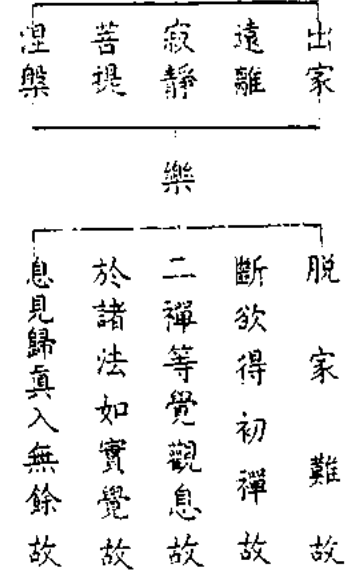 出家
遠離
寂靜
菩提
涅槃
樂
脱家難故
斷欲得初禪故
二禪等覺觀息故
於諸法如實覺故
息見歸真入無餘故